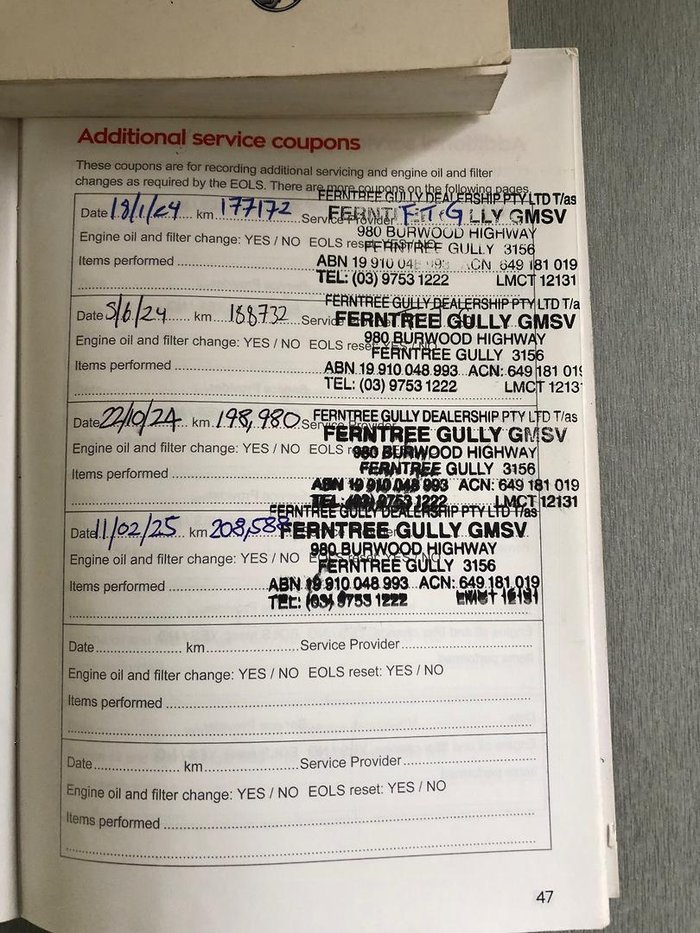 Additional service coupons
These coupons are for recording additional servicing and engine oil and filter
changes as required by the EOLS. There are more coupons on the following pages.
FERNTREE GULLY DEALERSHIP PTY LTD T/as
Date 18/1/24 km 177172 Service Provider F.T.G LLY GMSV
980 BURWOOD HIGHWAY
Engine oil and filter change: YES / NO EOLS reset: YES / NO
FERNTREE GULLY 3156
Items performed
ABN 19 910 04 993 ACN 649 181 019
TEL: (03) 9753 1222 LMCT 12131
FERNTREE GULLY DEALERSHIP PTY LTD T/a
Date 5/6/24 km 188732 Service FERNTREE GULLY GMSV
980 BURWOOD HIGHWAY
Engine oil and filter change: YES / NO EOLS reset: YES / NO
FERNTREE GULLY 3156
Items performed
ABN 19 910 048 993 ACN: 649 181 019
TEL: (03) 9753 1222 LMCT 1213
FERNTREE GULLY DEALERSHIP PTY LTD T/as
Date 22/10/24 km 198,980 Service Provider
FERNTREE GULLY GMSV
Engine oil and filter change: YES / NO EOLS
980 BURWOOD HIGHWAY
FERNTREE GULLY 3156
Items performed
ABN 19 910 048 993 ACN: 649 181 019
TEL: (03) 9753 1222 LMCT 12131
FERNTREE GULLY DEALERSHIP PTY LTD T/as
Date 11/02/25 km 208,588 FERNTREE GULLY GMSV
980 BURWOOD HIGHWAY
Engine oil and filter change: YES / NO EOLS reset: YES / NO
FERNTREE GULLY 3156
Items performed
ABN 19 910 048 993 ACN: 649 181 019
TEL: (03) 9753 1222 LMCT 12131
Date km Service Provider
Engine oil and filter change: YES / NO EOLS reset: YES / NO
Items performed
Date km Service Provider
Engine oil and filter change: YES / NO EOLS reset: YES / NO
Items performed
47